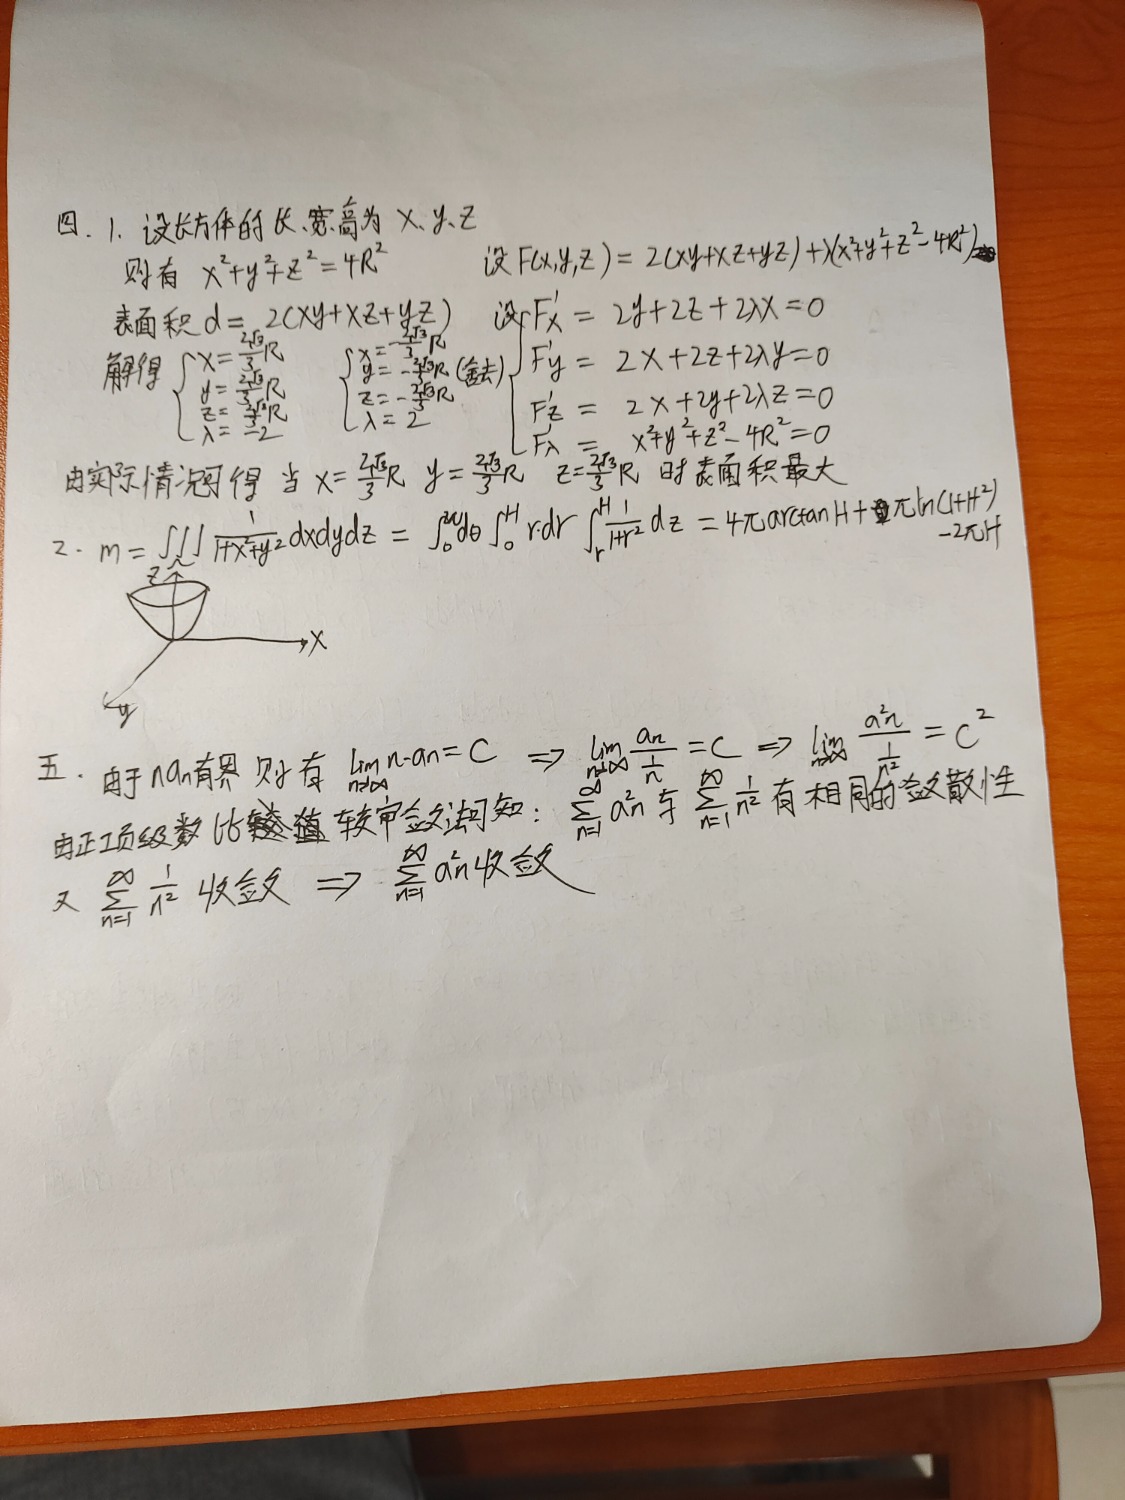 四. 1. 设长方体的长、宽、高为 x、y、z
则有 x²+y²+z²=4R² 设F(x,y,z)=2(xy+xz+yz)+λ(x²+y²+z²-4R²)
表面积d=2(xy+xz+yz) 设 F'x = 2y+2z+2λx=0
解得 x=2√3/3R x=-2√3/3R F'y = 2x+2z+2λy=0
y=2√3/3R y=-2√3/3R (舍去)
z=2√3/3R z=-2√3/3R F'z = 2x+2y+2λz=0
λ=-2 λ=2 F'λ = x²+y²+z²-4R²=0
由实际情况可得 当 x=2√3/3R y=2√3/3R z=2√3/3R 时表面积最大
2. m=∭ 1/(1+x²+y²) dxdydz = ∫₀^2π dθ ∫₀^H r·dr ∫ᵣ^H 1/(1+r²) dz = 4πarctanH+πln(1+H²)
-2πH
z
x
y
五. 由于nan有界 则有 lim n→∞ n·an=C ⇒ lim n→∞ an/(1/n)=C ⇒ lim n→∞ a²n/(1/n²)=C²
由正项级数比较审敛法可知: ∑n=1^∞ a²n 与 ∑n=1^∞ 1/n² 有相同的敛散性
又 ∑n=1^∞ 1/n² 收敛 ⇒ ∑n=1^∞ a²n收敛